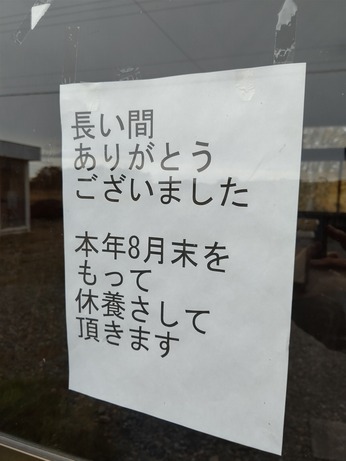 長い間
ありがとう
ございました
本年8月末を
もって
休養さして
頂きます